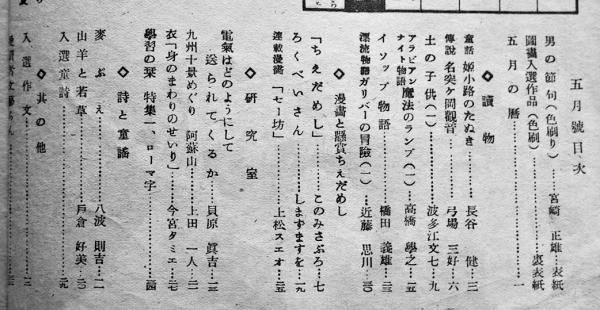 五月號目次
男の節句(色刷り)……宮崎 正雄…表紙
圖畫入選作品(色刷)……裏表紙
五月の暦……一
◇讀物
童話 姫小路のたぬき……長谷 健…三
傳說 名突ヶ岡觀音……弓場 三好…六
土の子供(一)……波多江文七…九
アラビアンナイト物語 魔法のランプ(一)…高橋 學之…一五
イソップ物語……橋田 義雄…三
漂流物語 ガリバーの冒險(一)…近藤 思川…三〇
◇漫畫と懸賞ちえだめし
「ちえだめし」……このみさぶろ…七
ろくべいさん……しまずますを…一九
連載漫畫 「セー坊」……上松スエオ…二五
◇研究室
電氣はどのようにして
送られてくるか……貝原 眞吉…一三
九州十景めぐり 阿蘇山……上田 一人…二
衣「身のまわりのせいり」……今宮タミエ…二七
學習の栞 特集一、ローマ字……二四
◇詩と童謠
麥ぶえ……八波 則吉…二
山羊と若草……戸倉 好美…三
入選童詩……元
◇其の他
入選作文……三